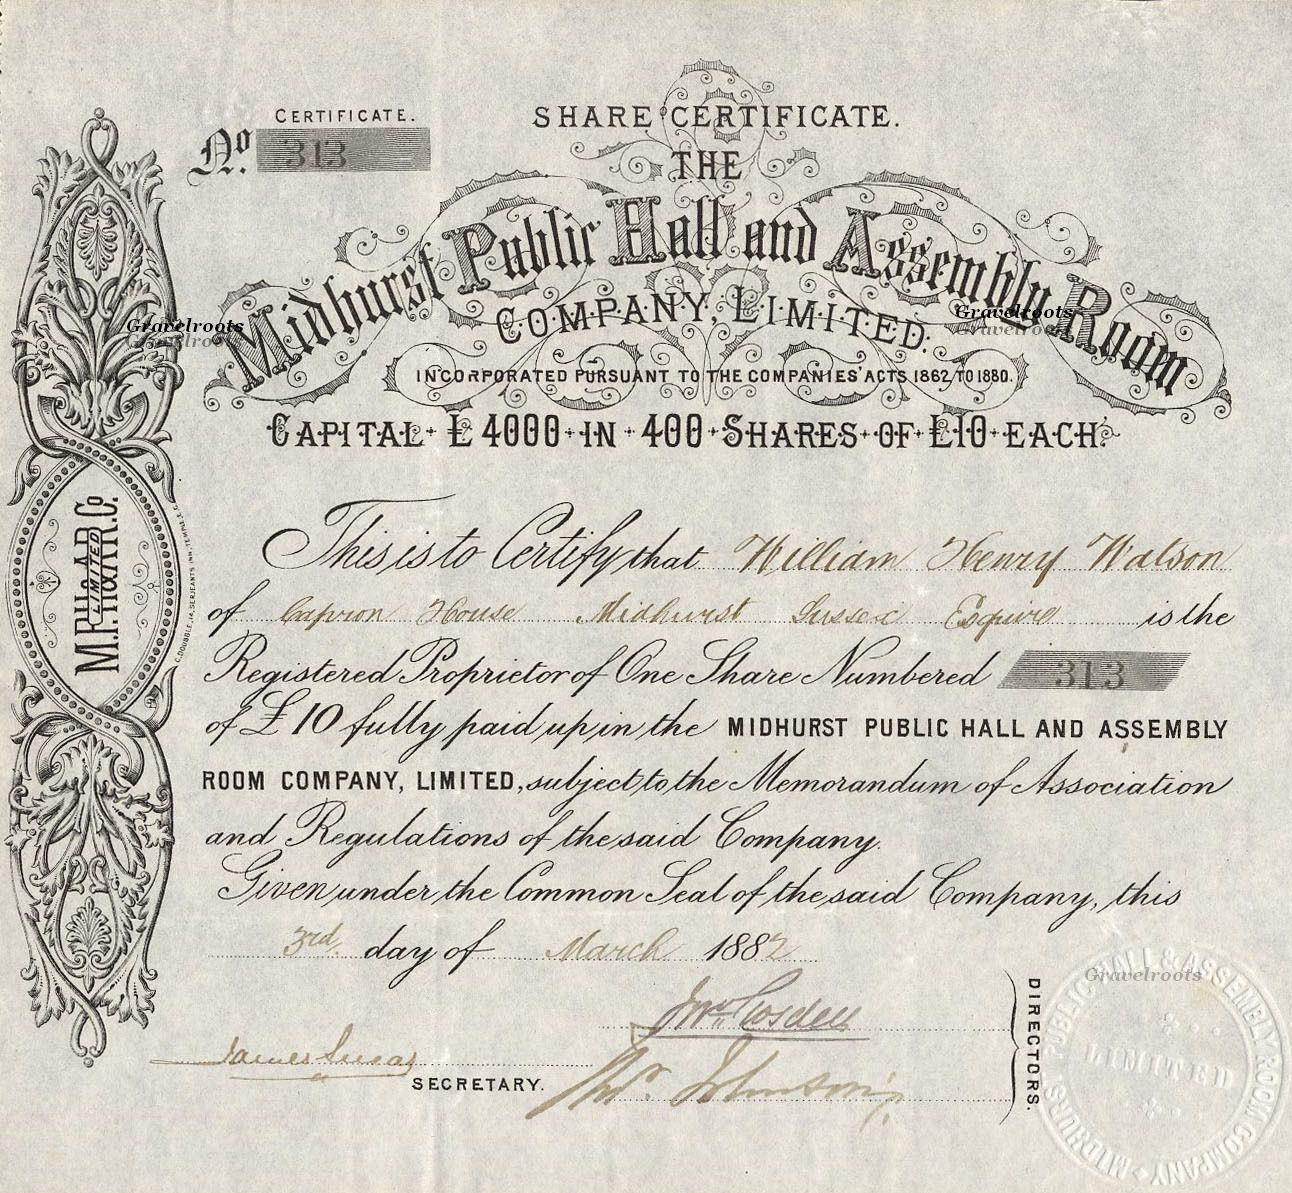 CERTIFICATE.
No. 313
SHARE CERTIFICATE.
THE
Midhurst Public Hall and Assembly Room
COMPANY, LIMITED.
INCORPORATED PURSUANT TO THE COMPANIES' ACTS 1862 TO 1880.
CAPITAL £4000 IN 400 SHARES OF £10 EACH.
Gravelroots
Gravelroots
Gravelroots
Gravelroots
M.P.H.&A.R.Co
LIMITED
C. DOUBLE, 14, SERJEANTS INN, TEMPLE, E.C.
This is to Certify that William Henry Watson
of Capron House Midhurst Sussex Esquire is the
Registered Proprietor of One Share Numbered 313
of £10 fully paid up in the MIDHURST PUBLIC HALL AND ASSEMBLY
ROOM COMPANY, LIMITED, subject to the Memorandum of Association
and Regulations of the said Company.
Given under the Common Seal of the said Company, this
3rd. day of March 1882
Gravelroots
James Lucas
SECRETARY.
Johnson
DIRECTORS.
MIDHURST PUBLIC HALL & ASSEMBLY ROOM COMPANY
LIMITED